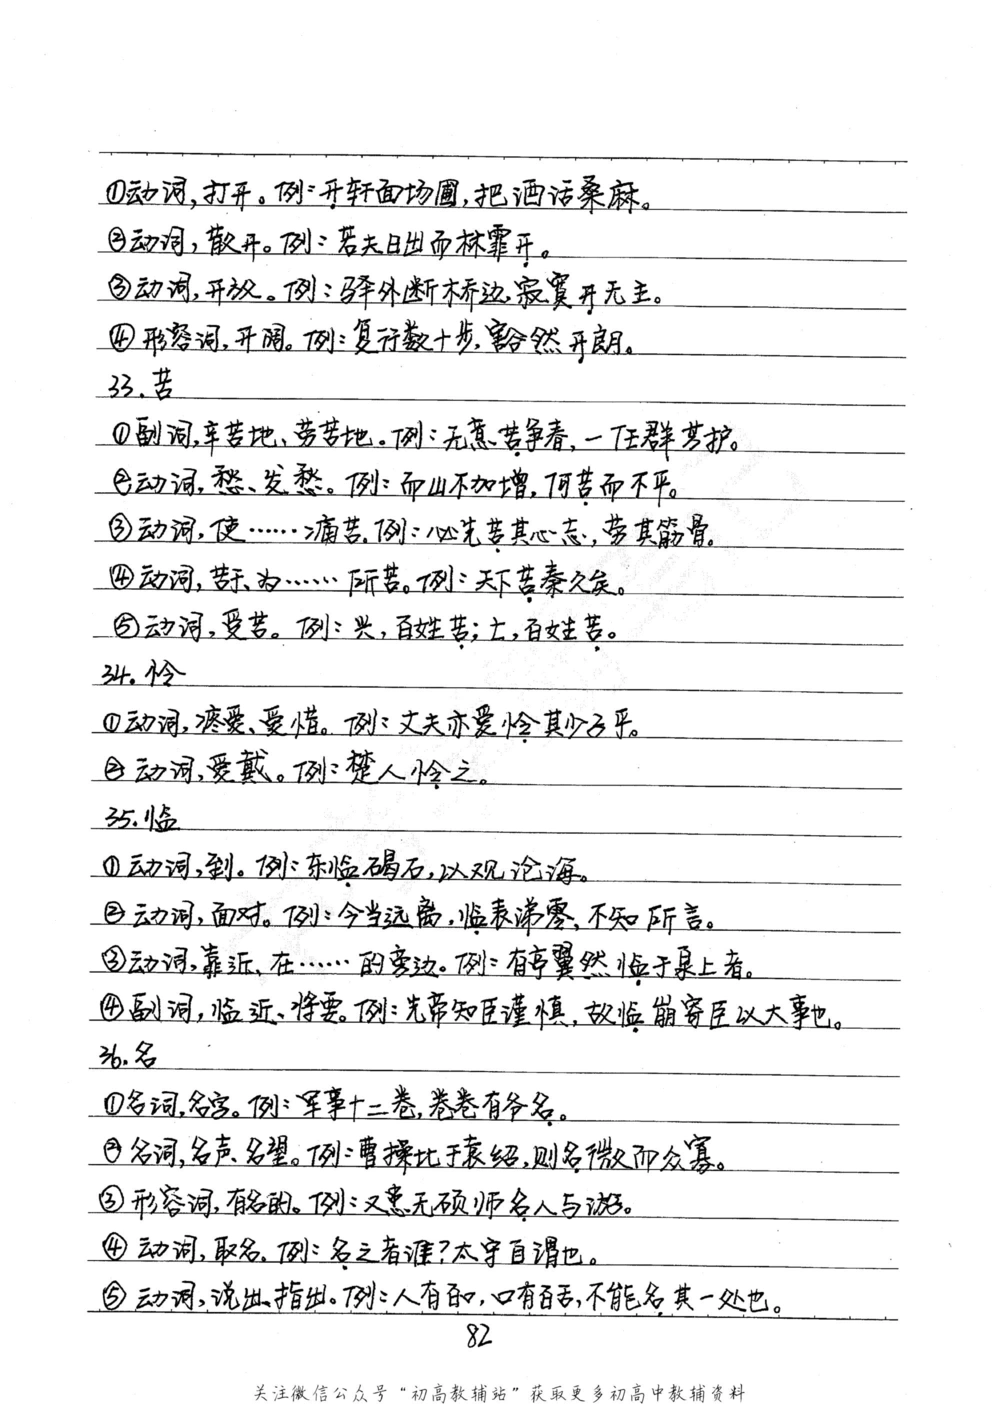 ①动词,打开。例:开轩面场圃,把酒话桑麻。
②动词,散开。例:若夫日出而林霏开。
③动词,开放。例:驿外断桥边,寂寞开无主。
④形容词,开阔。例:复行数十步,豁然开朗。
33.苦
①副词,辛苦地、劳苦地。例:无意苦争春,一任群芳护。
②动词,愁、发愁。例:而山不加增,何苦而不平。
③动词,使……痛苦。例:必先苦其心志,劳其筋骨。
④动词,苦于、为……所苦。例:天下苦秦久矣。
⑤动词,受苦。例:兴,百姓苦;亡,百姓苦。
34.怜
①动词,疼爱、爱惜。例:丈夫亦爱怜其少子乎。
②动词,爱戴。例:楚人怜之。
35.临
①动词,到。例:东临碣石,以观沧海。
②动词,面对。例:今当远离,临表涕零,不知所言。
③动词,靠近、在……的旁边。例:有亭翼然临于泉上者。
④副词,临近、将要。例:先帝知臣谨慎,故临崩寄臣以大事也。
36.名
①名词,名字。例:军事十二卷,卷卷有爷名。
②名词,名声、名望。例:曹操比于袁绍,则名微而众寡。
③形容词,有名的。例:又患无硕师名人与游。
④动词,取名。例:名之者谁?太守自谓也。
⑤动词,说出、指出。例:人有百口,口有百舌,不能名其一处也。
82
关注微信公众号“初高教辅站”获取更多初高中教辅资料